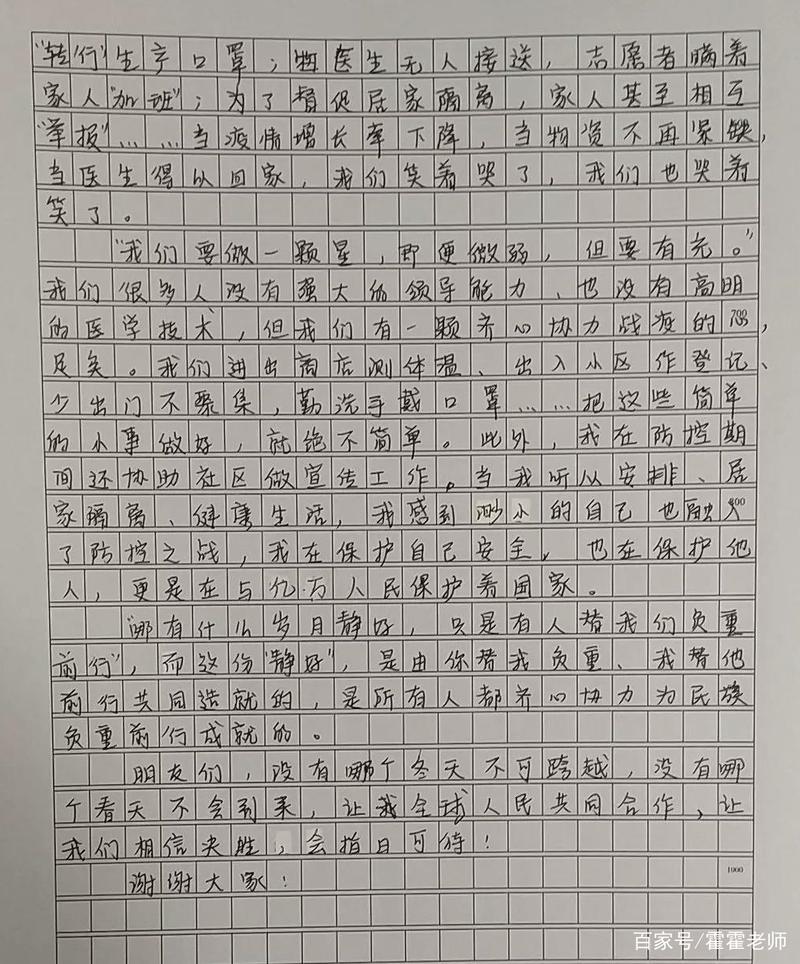 “转行”生产口罩；班医生无人接送，志愿者瞒着
家人“加班”；为了督促居家隔离，家人甚至相互
“举报”……当疫情增长率下降，当物资不再紧缺，
当医生得以回家，我们笑着哭了，我们也哭着
笑了。
“我们要做一颗星，即便微弱，但要有光。”
我们很多人没有强大的领导能力、也没有高明
的医学技术，但我们有一颗齐心协力战疫的心，
足矣。我们进出商店测体温、出入小区作登记、
少出门不聚集，勤洗手戴口罩……把这些简单
的小事做好，就绝不简单。此外，我在防控期
间还协助社区做宣传工作。当我听从安排、居
家隔离、健康生活，我感到渺小的自己也融入
了防控之战，我在保护自己安全，也在保护他
人，更是在与亿万人民保护着国家。
“哪有什么岁月静好，只是有人替我们负重
前行”，而这份“静好”，是由你替我负重、我替他
前行共同造就的，是所有人都齐心协力为民族
负重前行成就的。
朋友们，没有哪个冬天不可跨越，没有哪
个春天不会到来，让我全球人民共同合作，让
我们相信决胜，会指日可待！
谢谢大家！
700
800
1000
百家号/霍霍老师